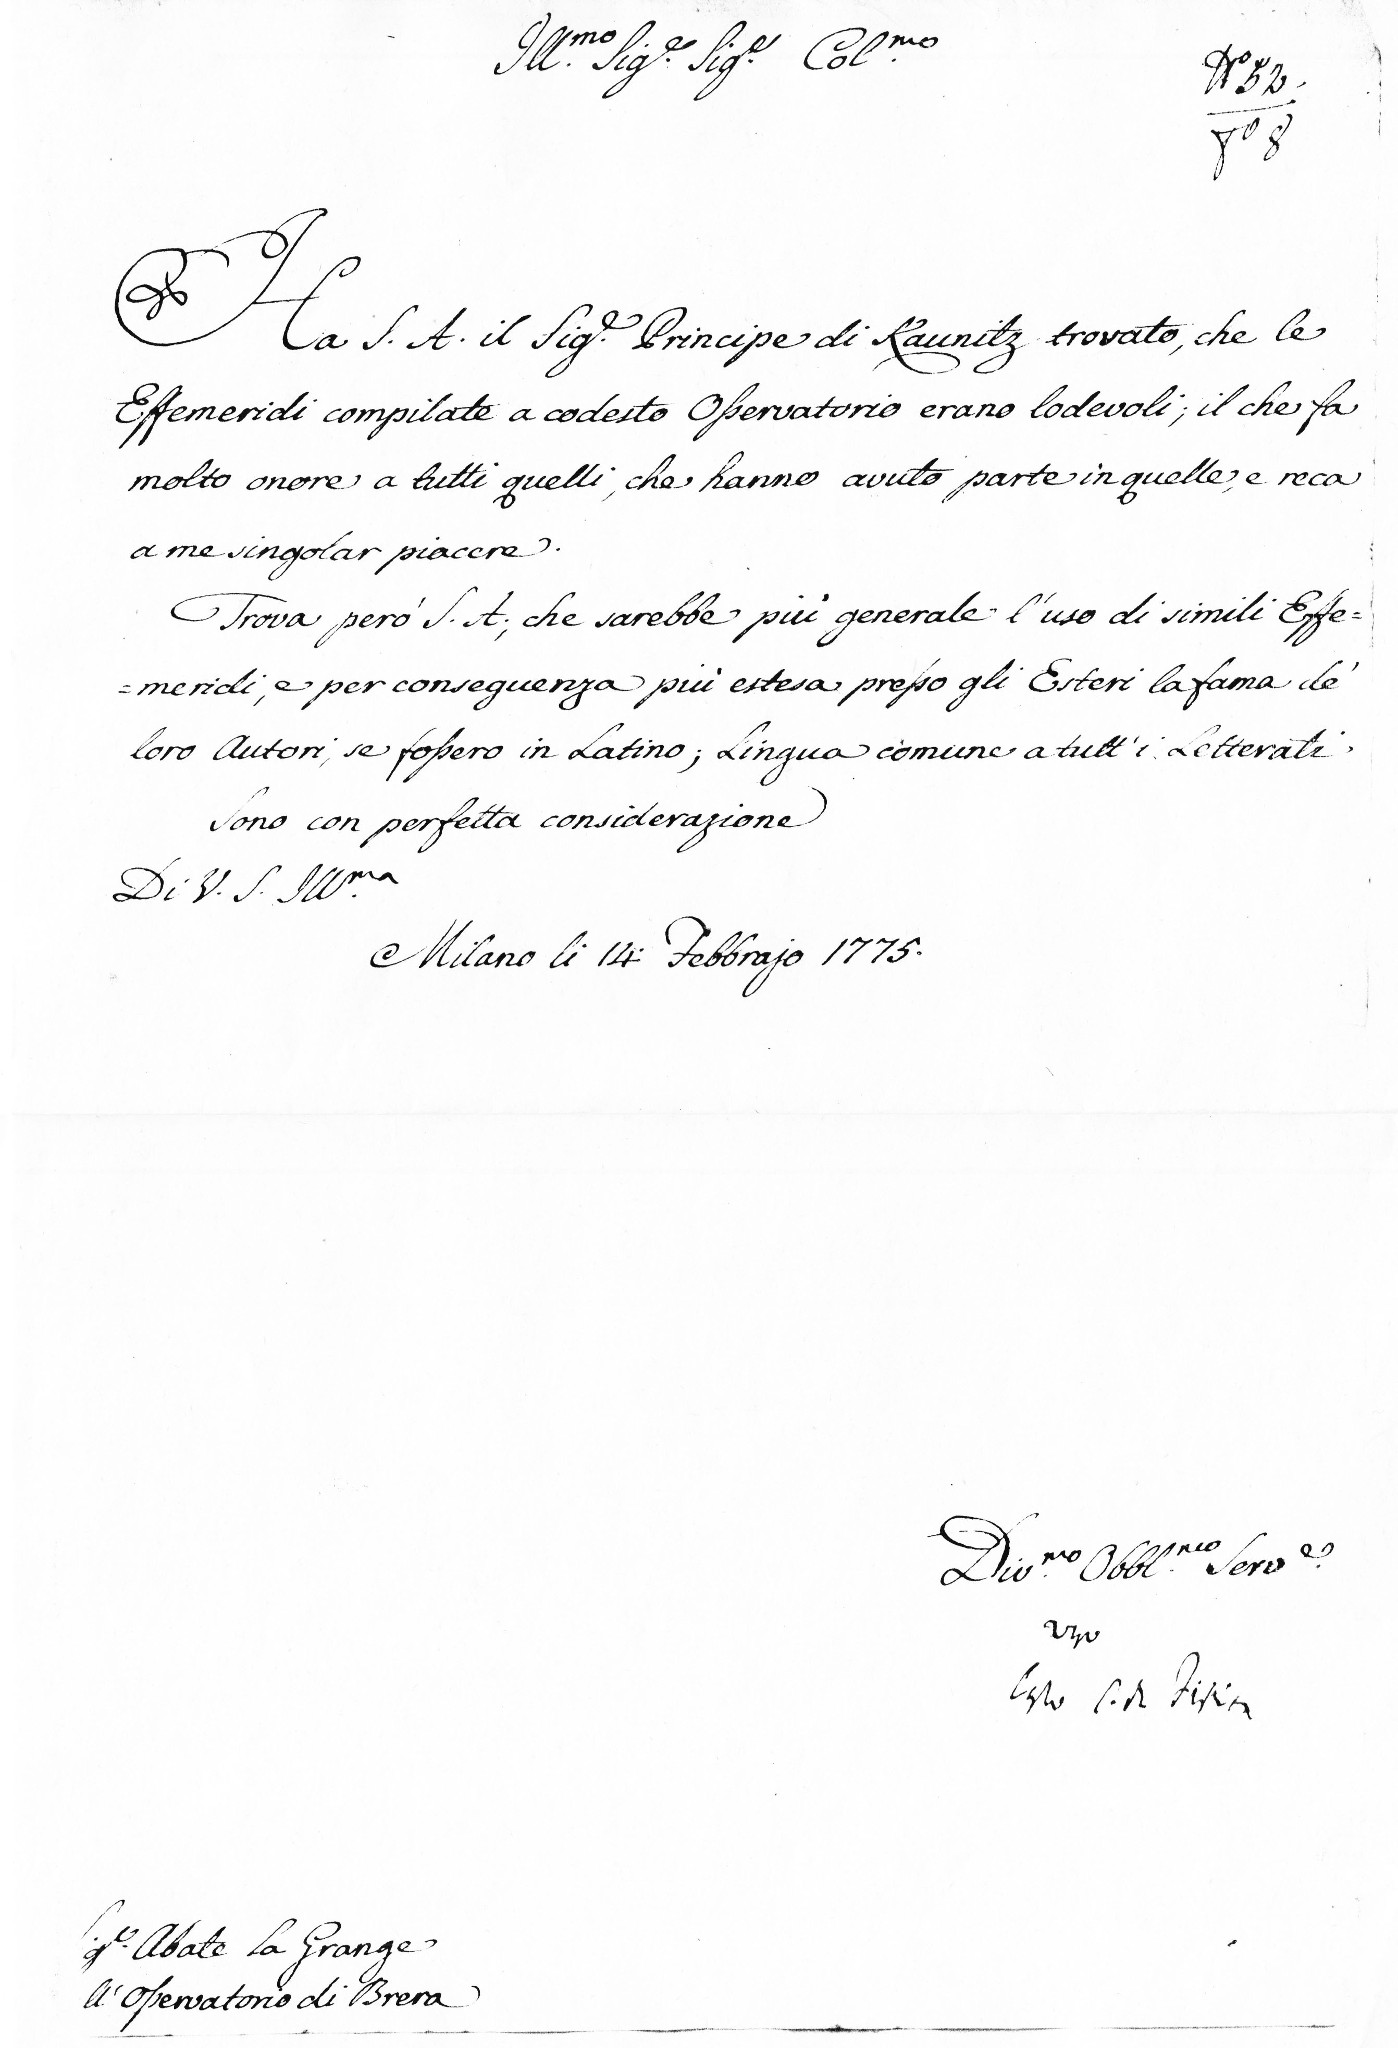 Ill.mo Sig.e Sig.e Col.mo
N.o 32.
f.o 8
Ha S. A. il Sig.e Principe di Kaunitz trovato, che le
Effemeridi compilate a codesto Osservatorio erano lodevoli; il che fa
molto onore a tutti quelli, che hanno avuto parte in quelle, e reca
a me singolar piacere.
Trova peró S. A., che sarebbe piú generale l'uso di simili Effe=
=meridi, e per conseguenza piú estesa presso gli Esteri la fama de'
loro Autori, se fossero in Latino; Lingua comune a tutt'i Letterati.
Sono con perfetta considerazione
Di V. S. Ill.ma
Milano li 14. Febbrajo 1775.
Div.mo Obbl.mo Serv.e
C. di Firmian
Sig.e Abate La Grange
All'Osservatorio di Brera